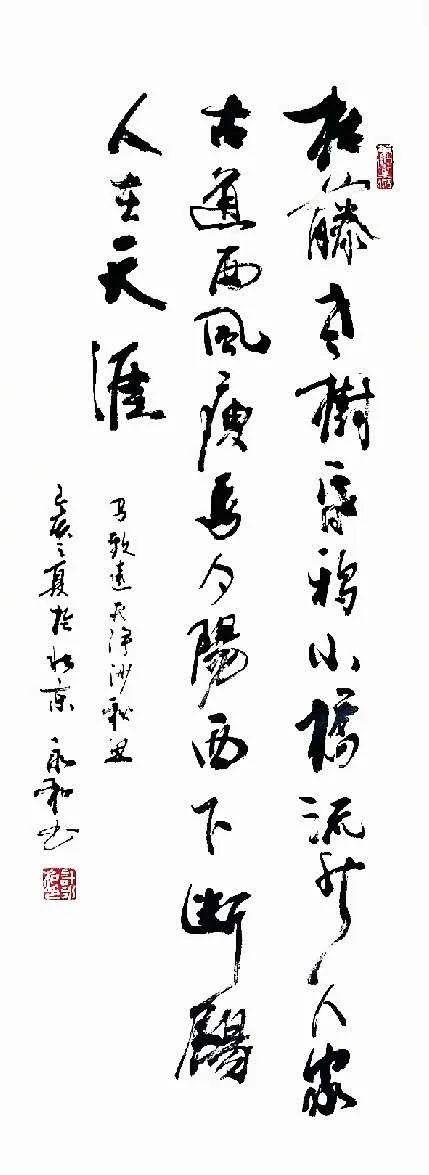 枯藤老樹昏鴉小橋流水人家
古道西風瘦馬夕陽西下斷腸
人在天涯
马致遠天净沙秋思
辰之夏於北京 永和书